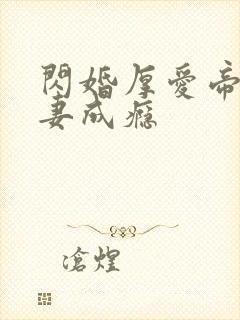 閃婚厚愛帝
妻成癮
滄煌